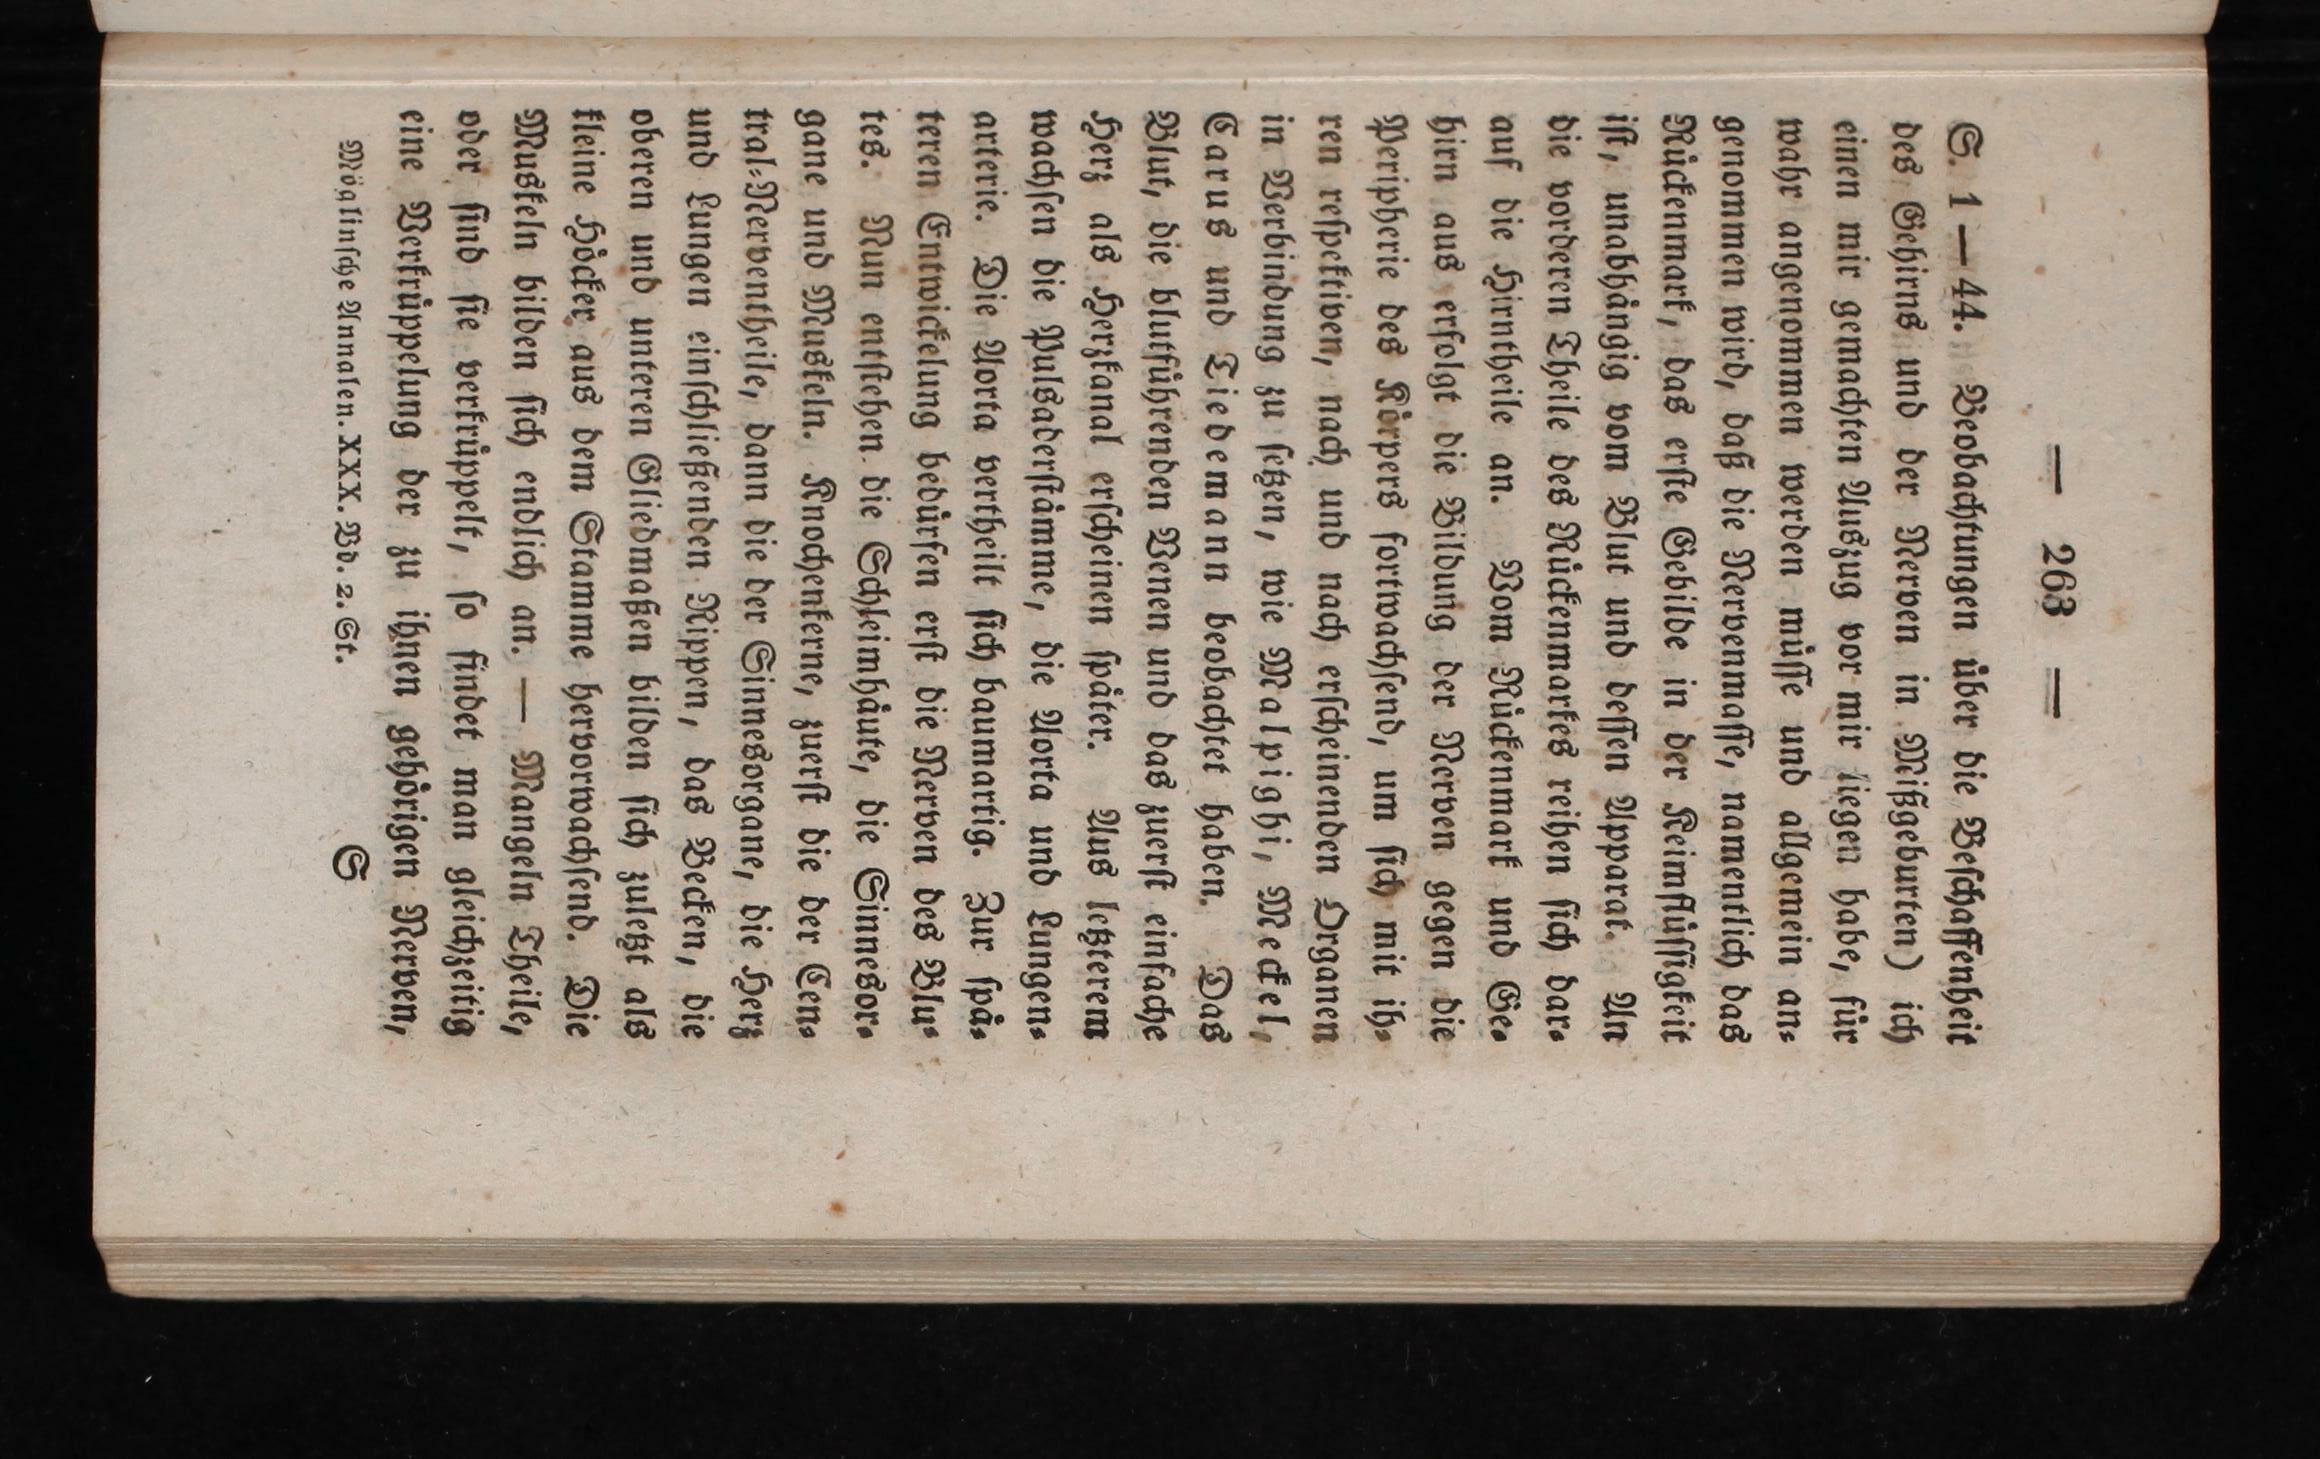 — 263 —
S. 1—44. Beobachtungen über die Beschaffenheit
des Gehirns und der Nerven in Mißgeburten) ich
einen mir gemachten Auszug vor mir liegen habe, für
wahr angenommen werden müsse und allgemein an-
genommen wird, daß die Nervenmasse, namentlich das
Rückenmark, das erste Gebilde in der Keimflüssigkeit
ist, unabhängig vom Blut und dessen Apparat. An
die vorderen Theile des Rückenmarkes reihen sich dar-
auf die Hirntheile an. Vom Rückenmark und Ge-
hirn aus erfolgt die Bildung der Nerven gegen die
Peripherie des Körpers fortwachsend, um sich mit ih-
ren respektiven, nach und nach erscheinenden Organen
in Verbindung zu setzen, wie Malpighi, Meckel,
Carus und Tiedemann beobachtet haben. Das
Blut, die blutführenden Venen und das zuerst einfache
Herz als Herzkanal erscheinen später. Aus letzterem
wachsen die Pulsaderstämme, die Aorta und Lungen-
arterie. Die Aorta vertheilt sich baumartig. Zur spä-
teren Entwickelung bedürfen erst die Nerven des Blu-
tes. Nun entstehen die Schleimhäute, die Sinnesor-
gane und Muskeln. Knochenkerne, zuerst die der Cen-
tral-Nerventheile, dann die der Sinnesorgane, die Herz
und Lungen einschließenden Rippen, das Becken, die
oberen und unteren Gliedmaßen bilden sich zuletzt als
kleine Höcker aus dem Stamme hervorwachsend. Die
Muskeln bilden sich endlich an. — Mangeln Theile,
oder sind sie verkrüppelt, so findet man gleichzeitig
eine Verkrüppelung der zu ihnen gehörigen Nerven,
Möglinsche Annalen. XXX. Bd. 2. St. S